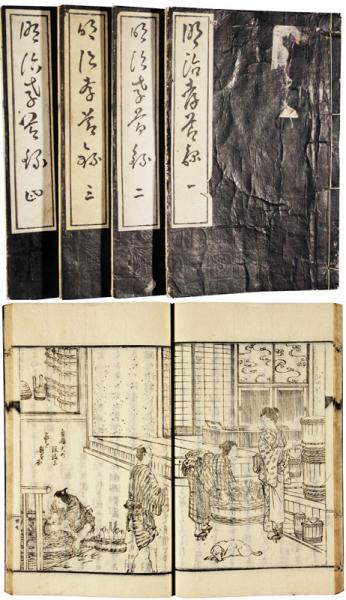 明治孝節録 一
明治孝節録 二
明治孝節録 三
明治孝節録 四